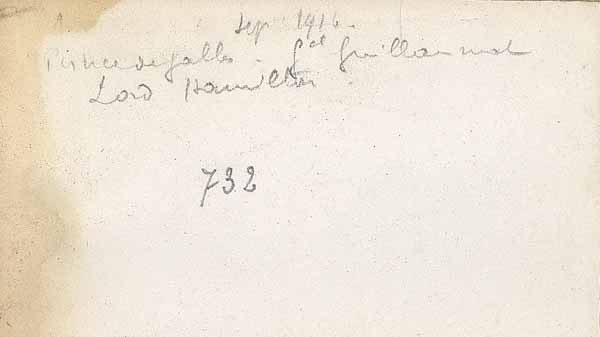 Sep 1916.
Prince de Galles. Gal Guillaumat
Lord Hamilton.
732